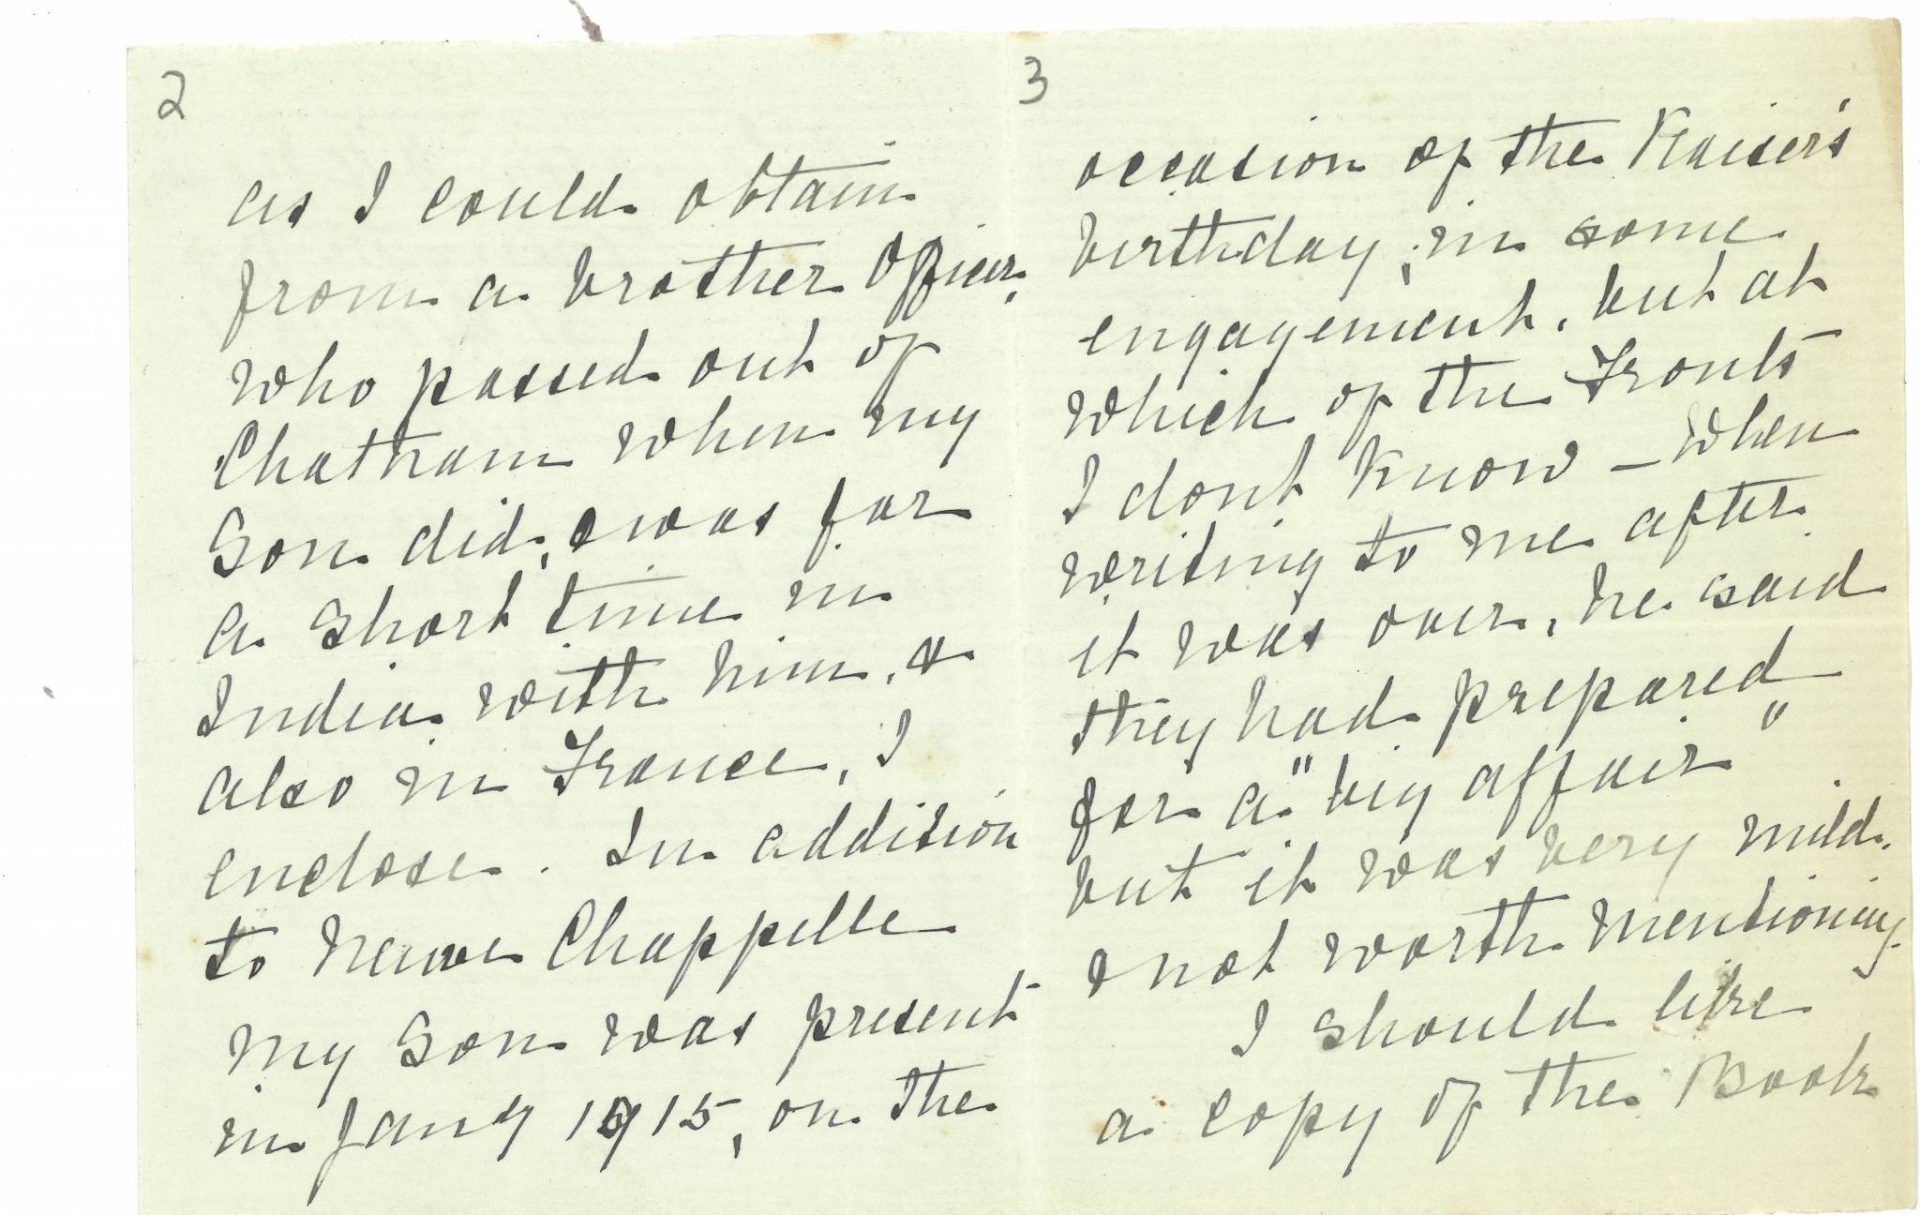 2
as I could obtain
from a brother Officer,
who passed out of
Chatham when my
Son did, & was for
a short time in
India with him, &
also in France, I
enclose. In addition
to Neuve Chappelle
my Son was present
in Jany 1915, on the
3
occasion of the Kaiser's
birthday, in some
engagement, but at
which of the Fronts
I dont know – when
writing to me after
it was over, he said
they had prepared
for a "big affair"
but it was very mild.
& not worth mentioning.
I should like
a copy of the Book